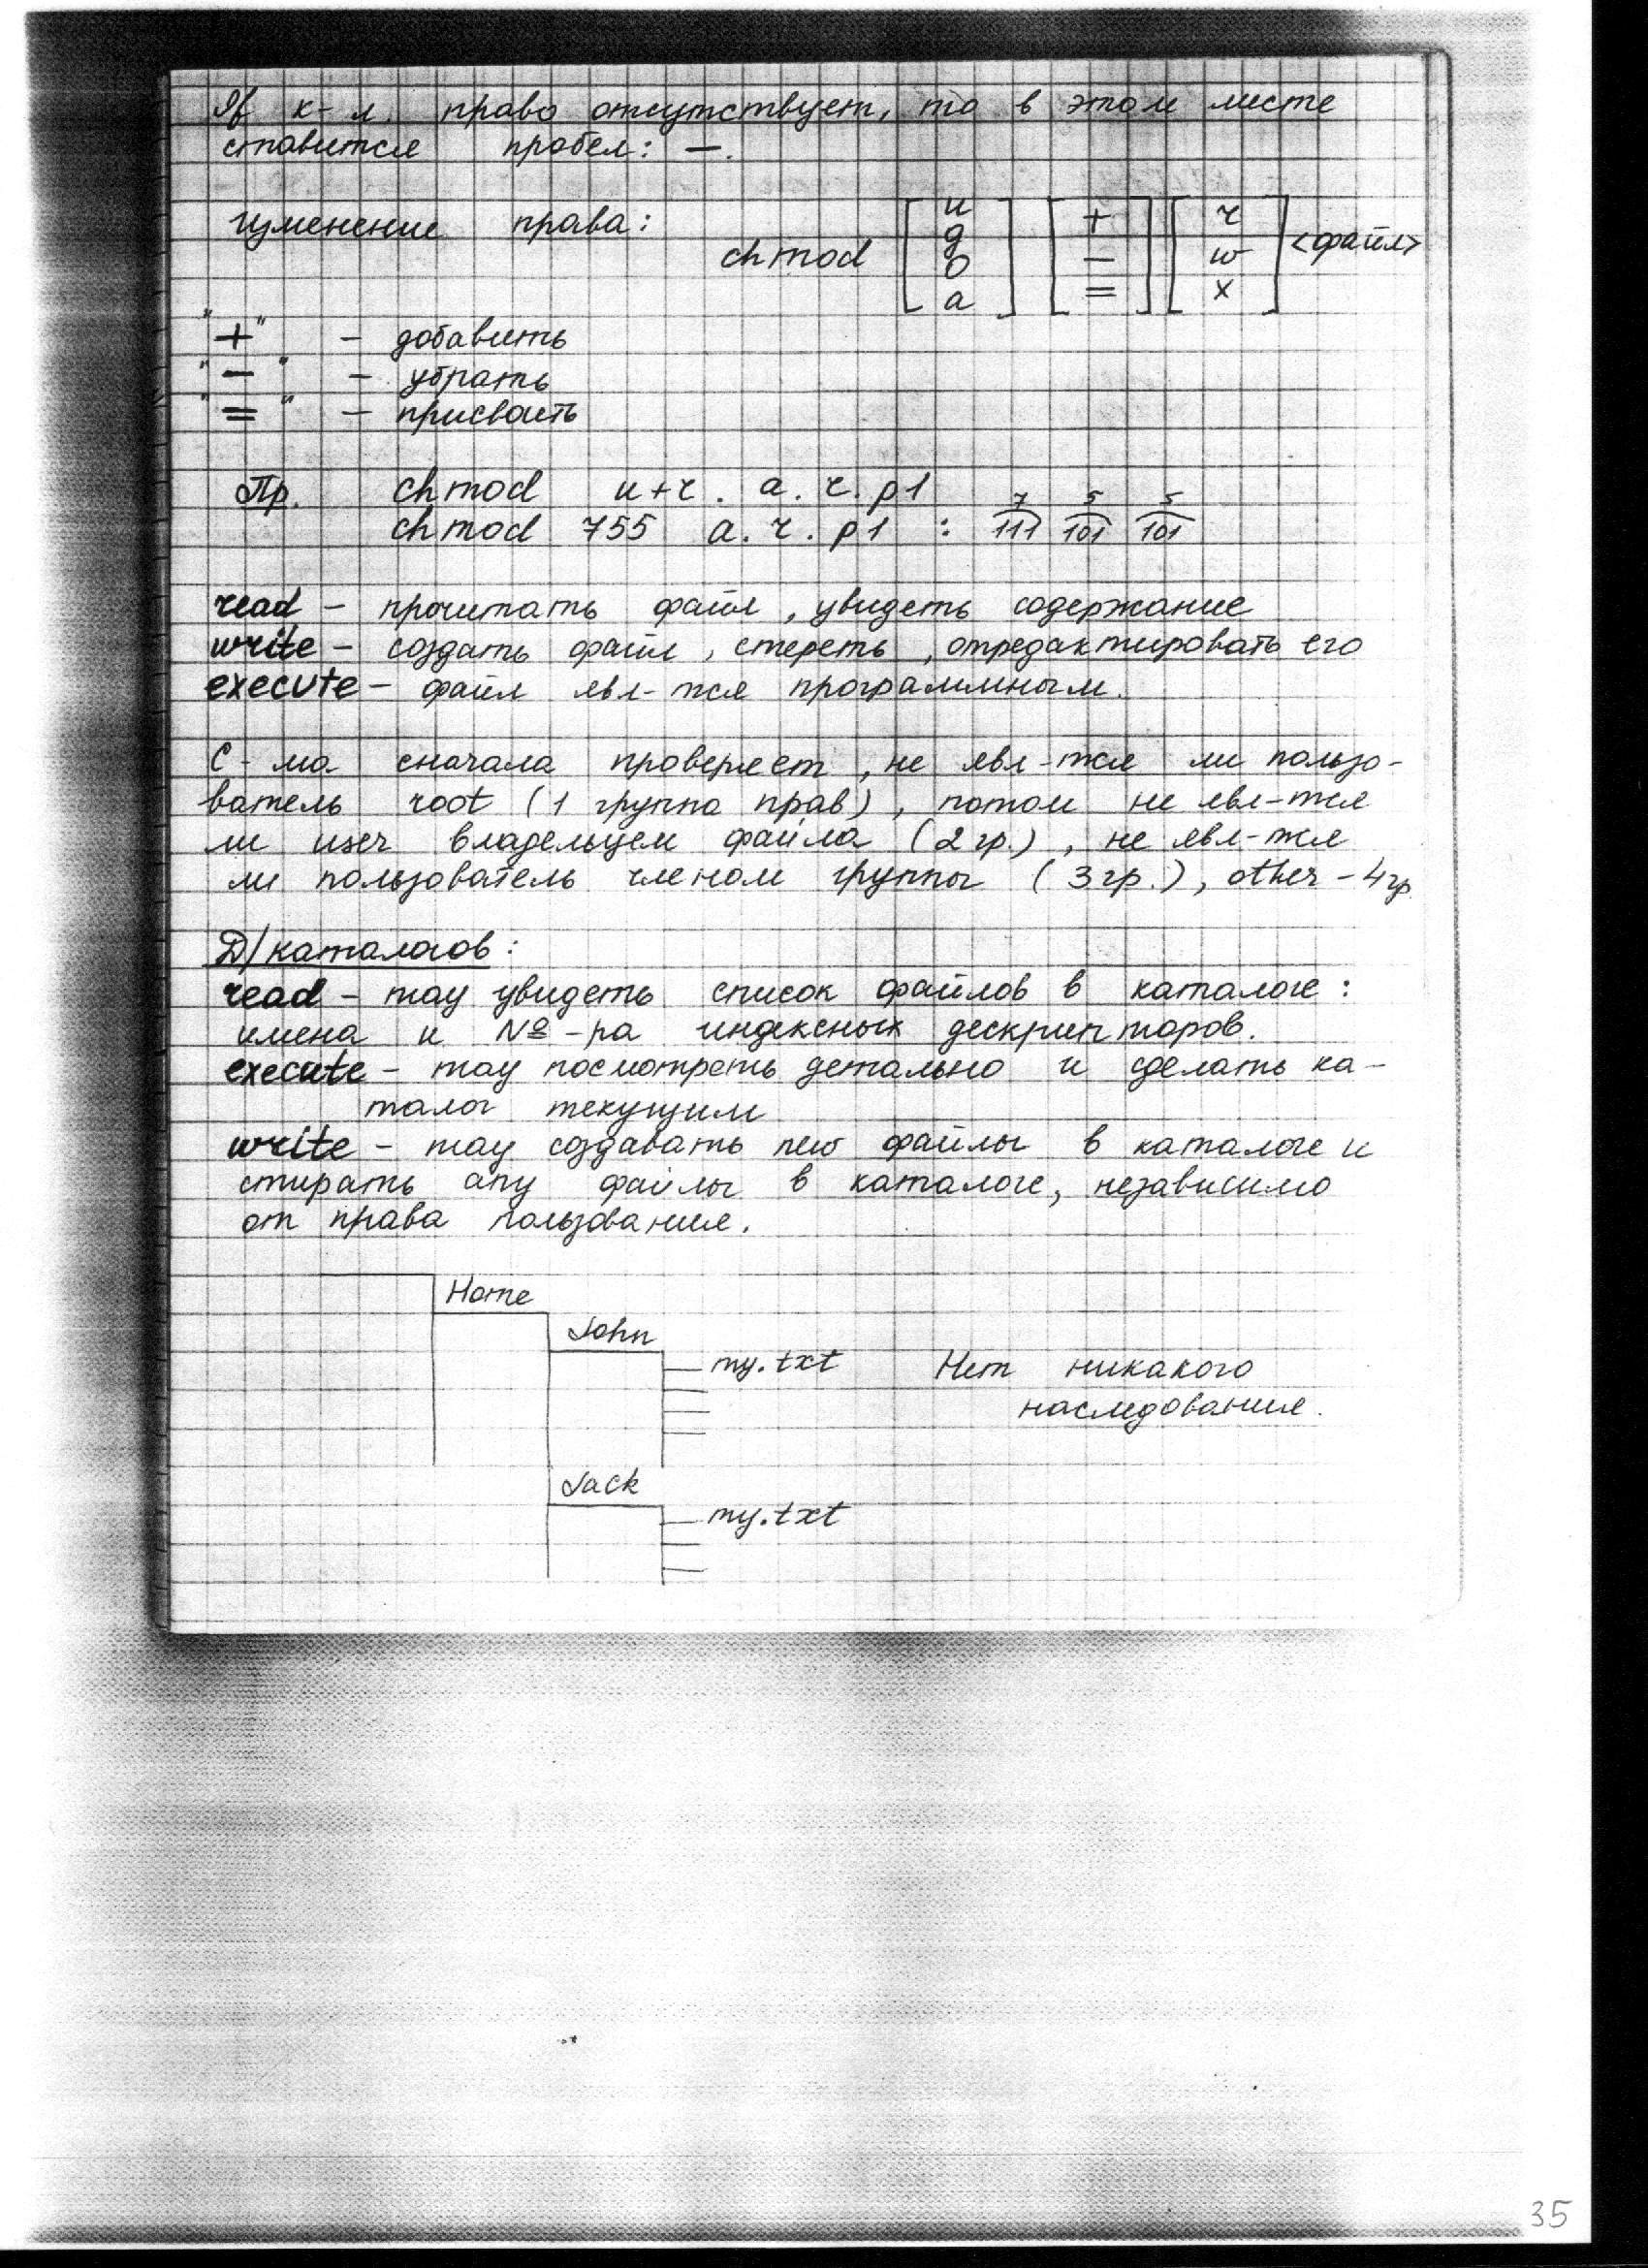 If к-л. право отсутствует, то в этом месте
ставится пробел: —.
Изменение права:
chmod [u g o a] [+ - =] [r w x] <файл>
"+" - добавить
"-" - убрать
"=" - присвоить
Пр. chmod u+r. a. r. p1
chmod 755 a. r. p1 : 111 101 101
7 5 5
read - прочитать файл, увидеть содержание
write - создать файл, стереть, отредактировать его
execute - файл явл-тся программным.
С-ма сначала проверяет, не явл-тся ли пользо-
ватель root (1 группа прав), потом не явл-тся
ли user владельцем файла (2 гр.), не явл-тся
ли пользователь членом группы (3 гр.), other - 4 гр.
Д/каталогов:
read - may увидеть список файлов в каталоге:
имена и №-ра индексных дескрипторов.
execute - may посмотреть детально и сделать ка-
талог текущим
write - may создавать new файлы в каталоге и
стирать any файлы в каталоге, независимо
от права пользования.
Home
John
my.txt Нет никакого
наследования.
Jack
my.txt
35